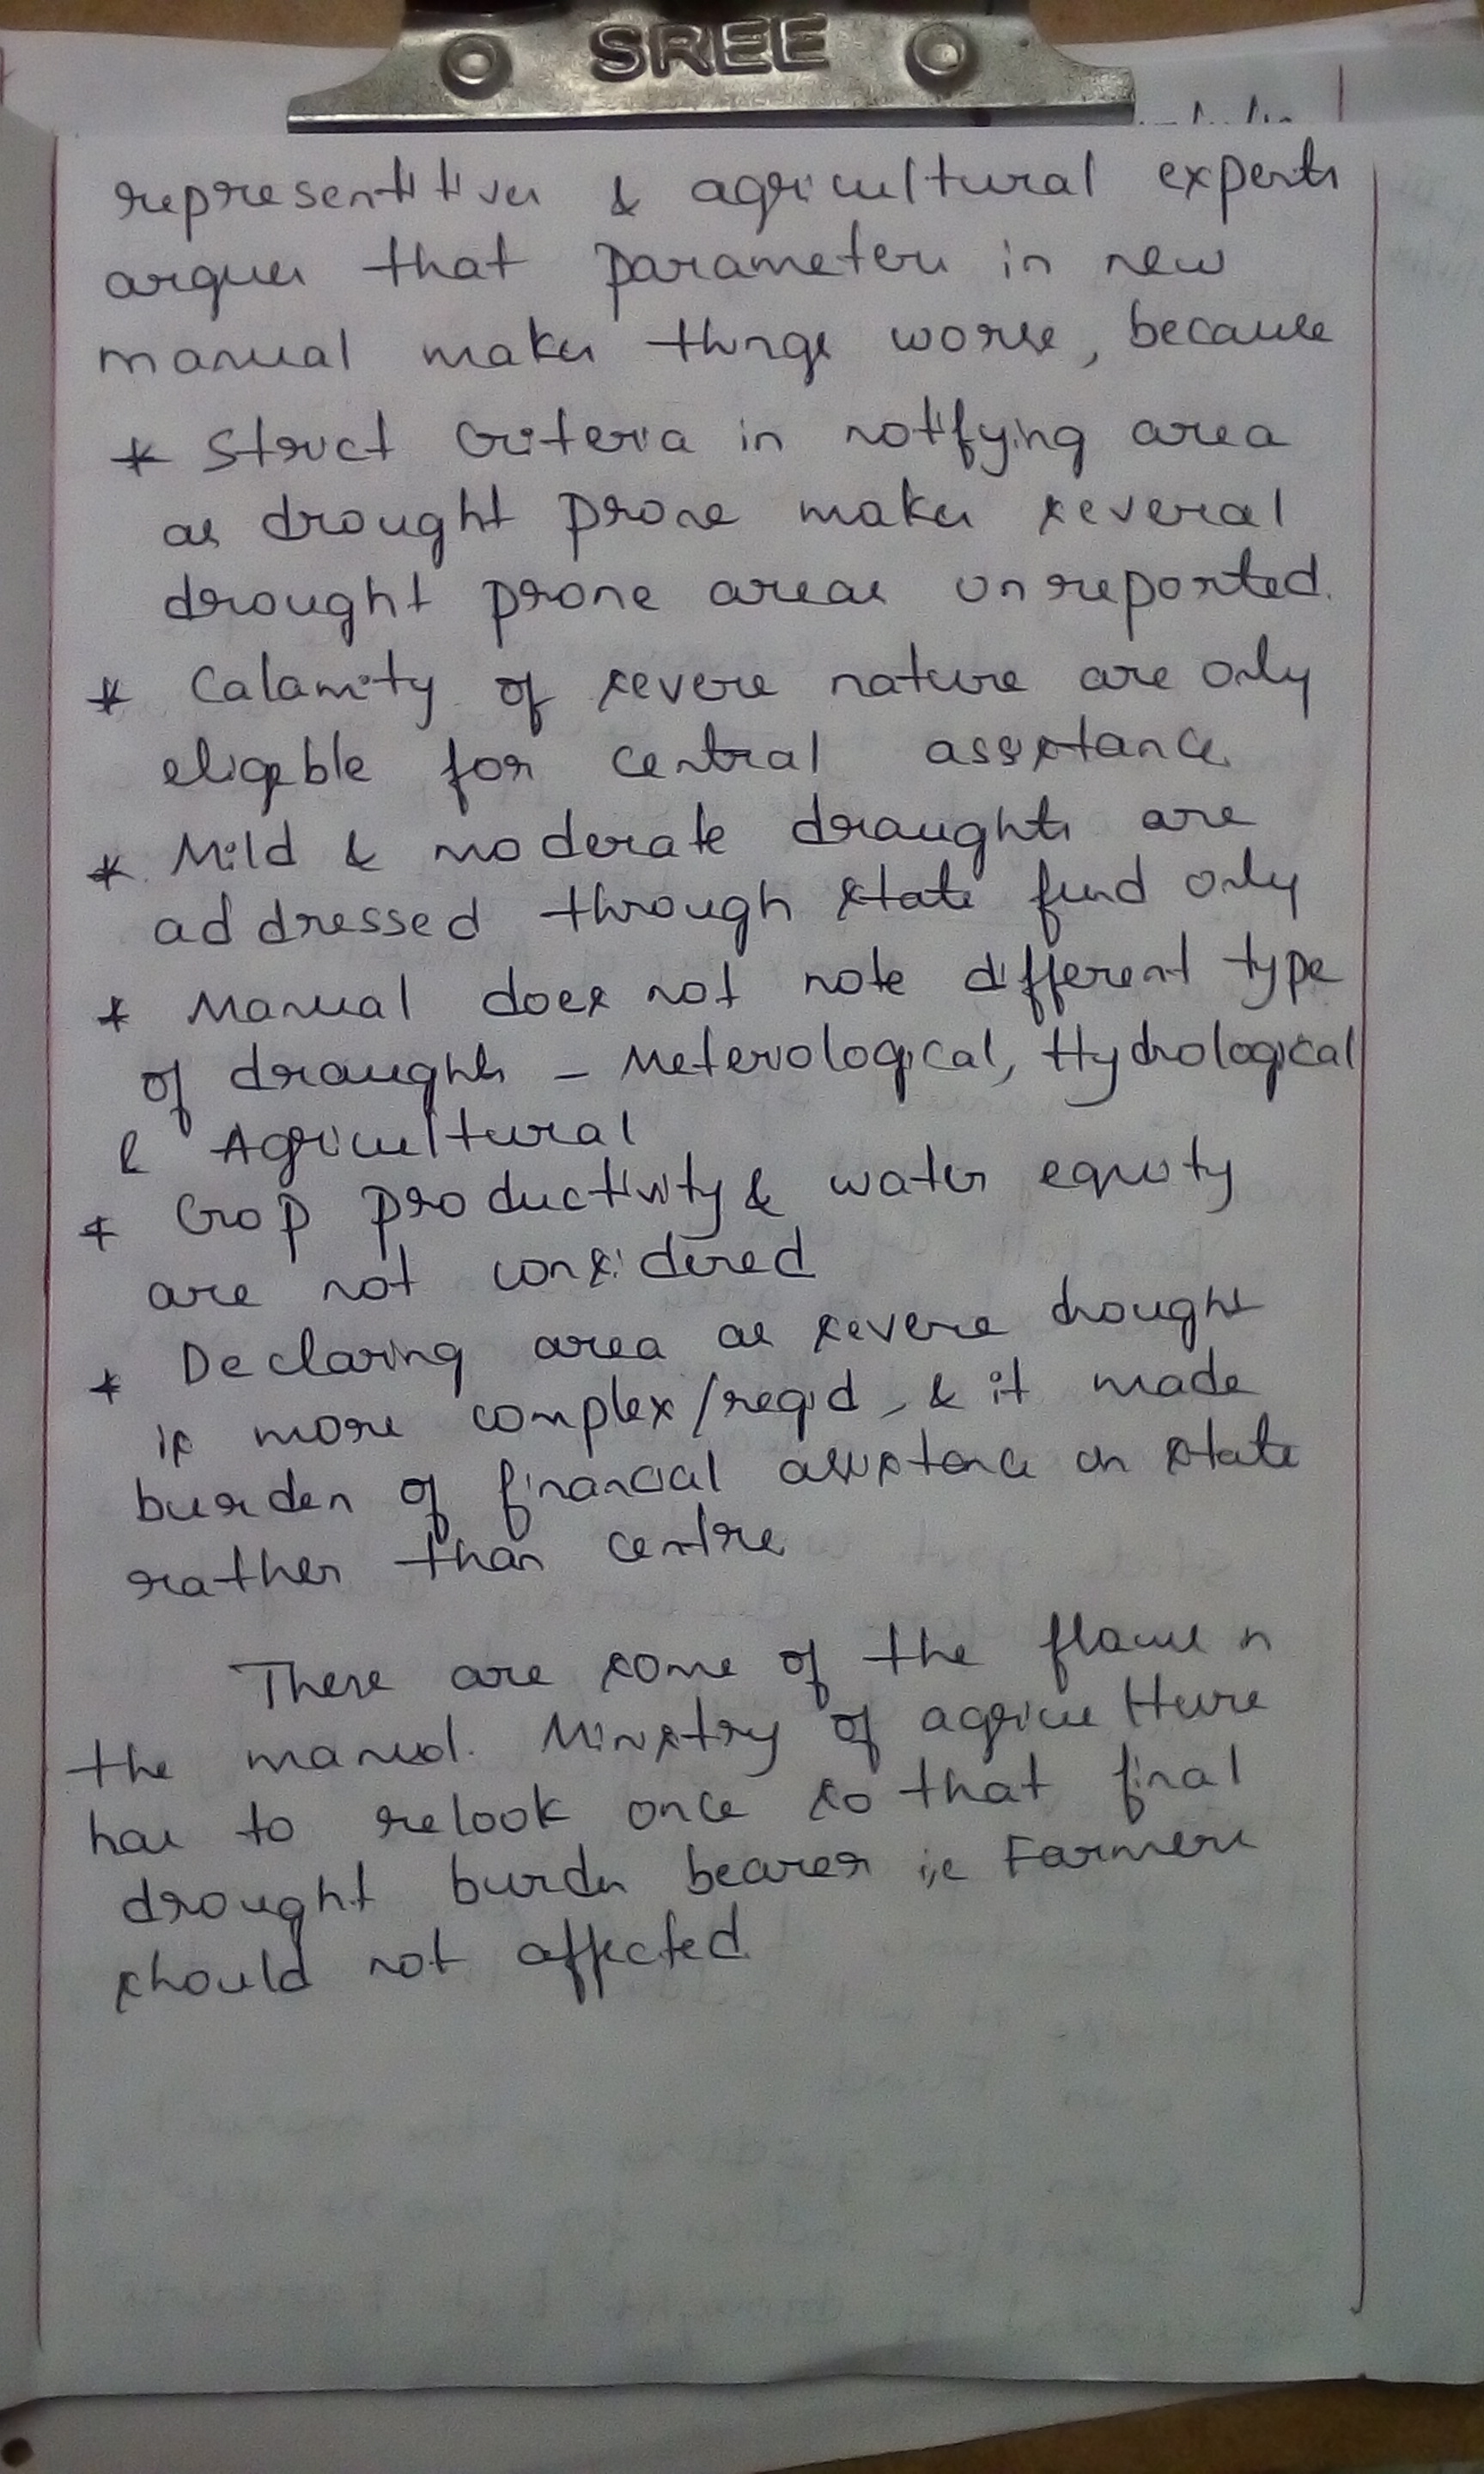 SREE
representitives & agricultural experts
argues that parameters in new
manual makes things worse, because
* Strict Criteria in notifying area
as drought prone makes several
drought prone areas unreported.
* Calamity of severe nature are only
eligible for central assistance
* Mild & moderate draughts are
addressed through state fund only
* Manual does not note different type
of draughts - Meterological, Hydrological
& Agricultural
* Crop productivity & water equity
are not considered
* Declaring area as severe drought
is more complex/regid, & it made
burden of financial assistance on state
rather than centre
There are some of the flaws in
the manual. Ministry of agriculture
has to relook once so that final
drought burden bearer i,e Farmers
should not affected